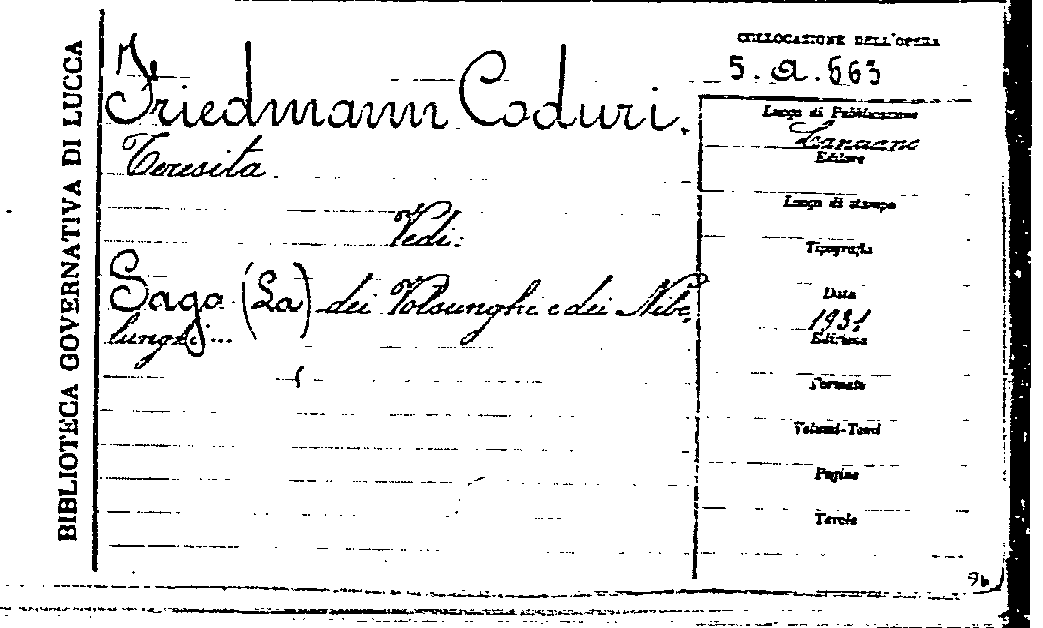 BIBLIOTECA GOVERNATIVA DI LUCCA
COLLOCAZIONE DELL'OPERA
5. a. 663
Friedmann Coduri.
Teresita
Vedi:
Saga (La) dei Volsunghi e dei Nibe
lunghi...
Luogo di Pubblicazione
Lanciano
Editore
Luogo di stampa
Tipografia
Data
1931
Edizione
Formato
Volumi-Tomi
Pagine
Tavole